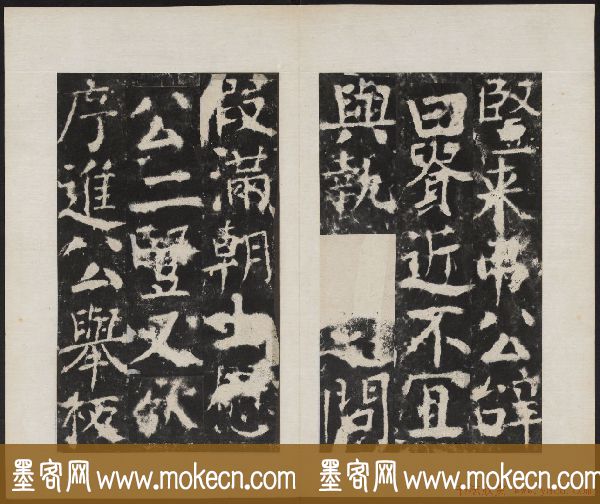 竪来弔公辭
曰近不宜
與執之問
假滿朝士慰
公二竪又欲
序進公舉板
墨客网 www.mokecn.com 墨客网 www.mokecn.com